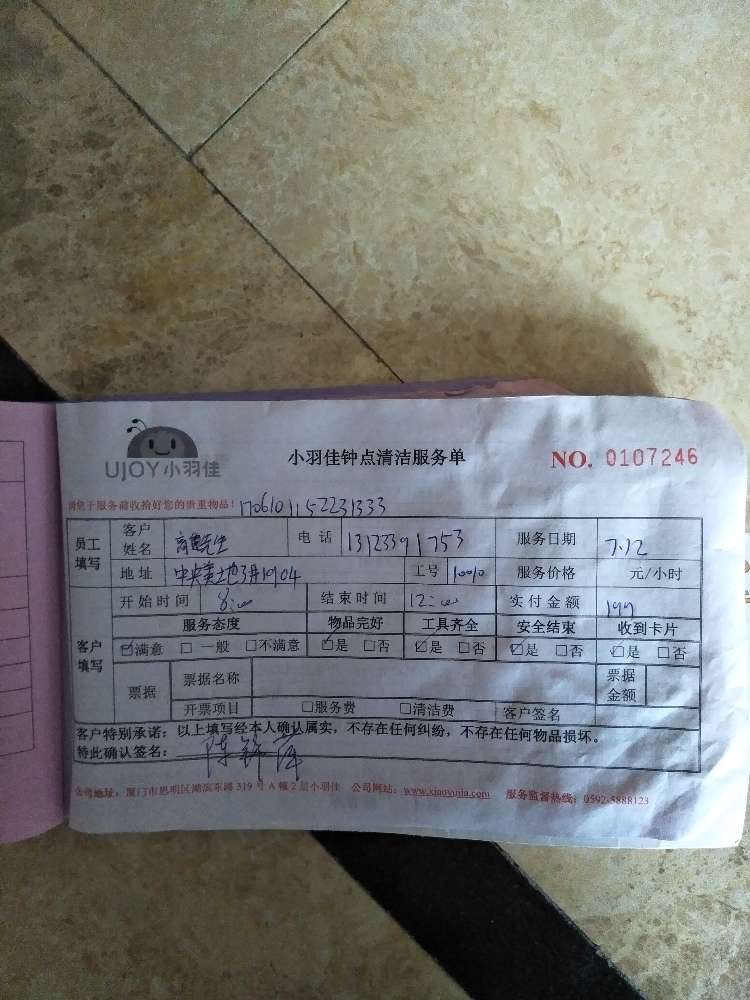 UJOY小羽佳
小羽佳钟点清洁服务单
NO. 0107246
请您于服务前收拾好您的贵重物品！1706101152231333
员工填写 客户姓名 先生 电话 13123391753 服务日期 7.12
地址 中央美地 1904 工号 10010 服务价格 元/小时
开始时间 8:00 结束时间 12:00 实付金额 199
客户填写 服务态度 物品完好 工具齐全 安全结束 收到卡片
☑满意 □一般 □不满意 ☑是 □否 ☑是 □否 ☑是 □否 ☑是 □否
票据 票据名称 票据金额
开票项目 □服务费 □清洁费 客户签名
客户特别承诺：以上填写经本人确认属实，不存在任何纠纷，不存在任何物品损坏。
特此确认签名：陈
公司地址：厦门市思明区湖滨东路319号A幢2层小羽佳 公司网站：www.xiaoyujia.com 服务监督热线：0592-5888123